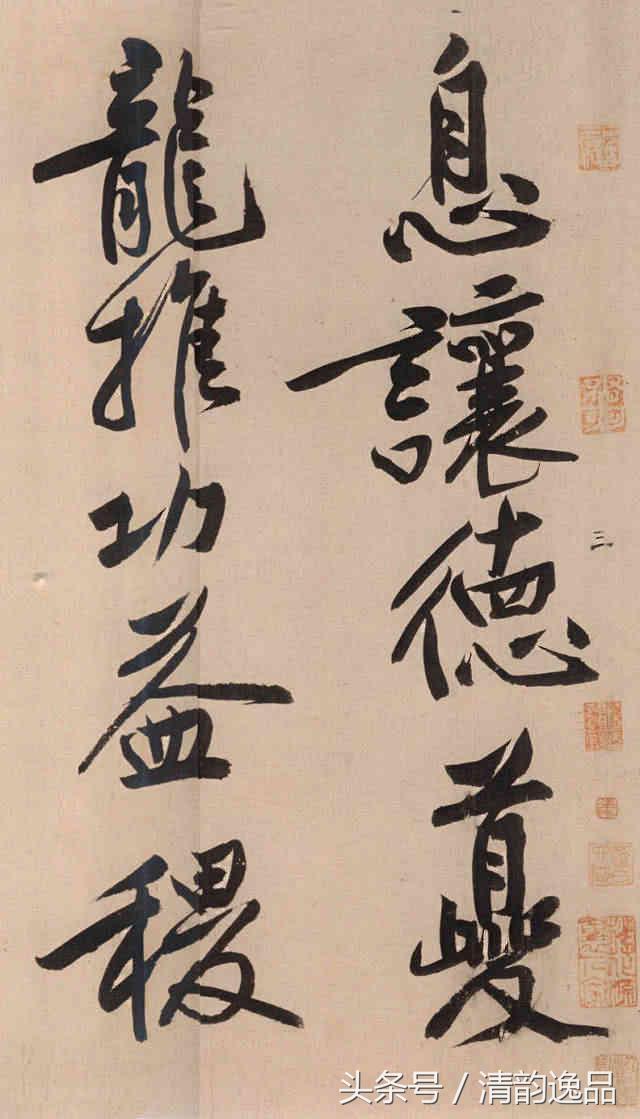 息讓德夔
龍推功益稷
三
头条号 / 清韵逸品